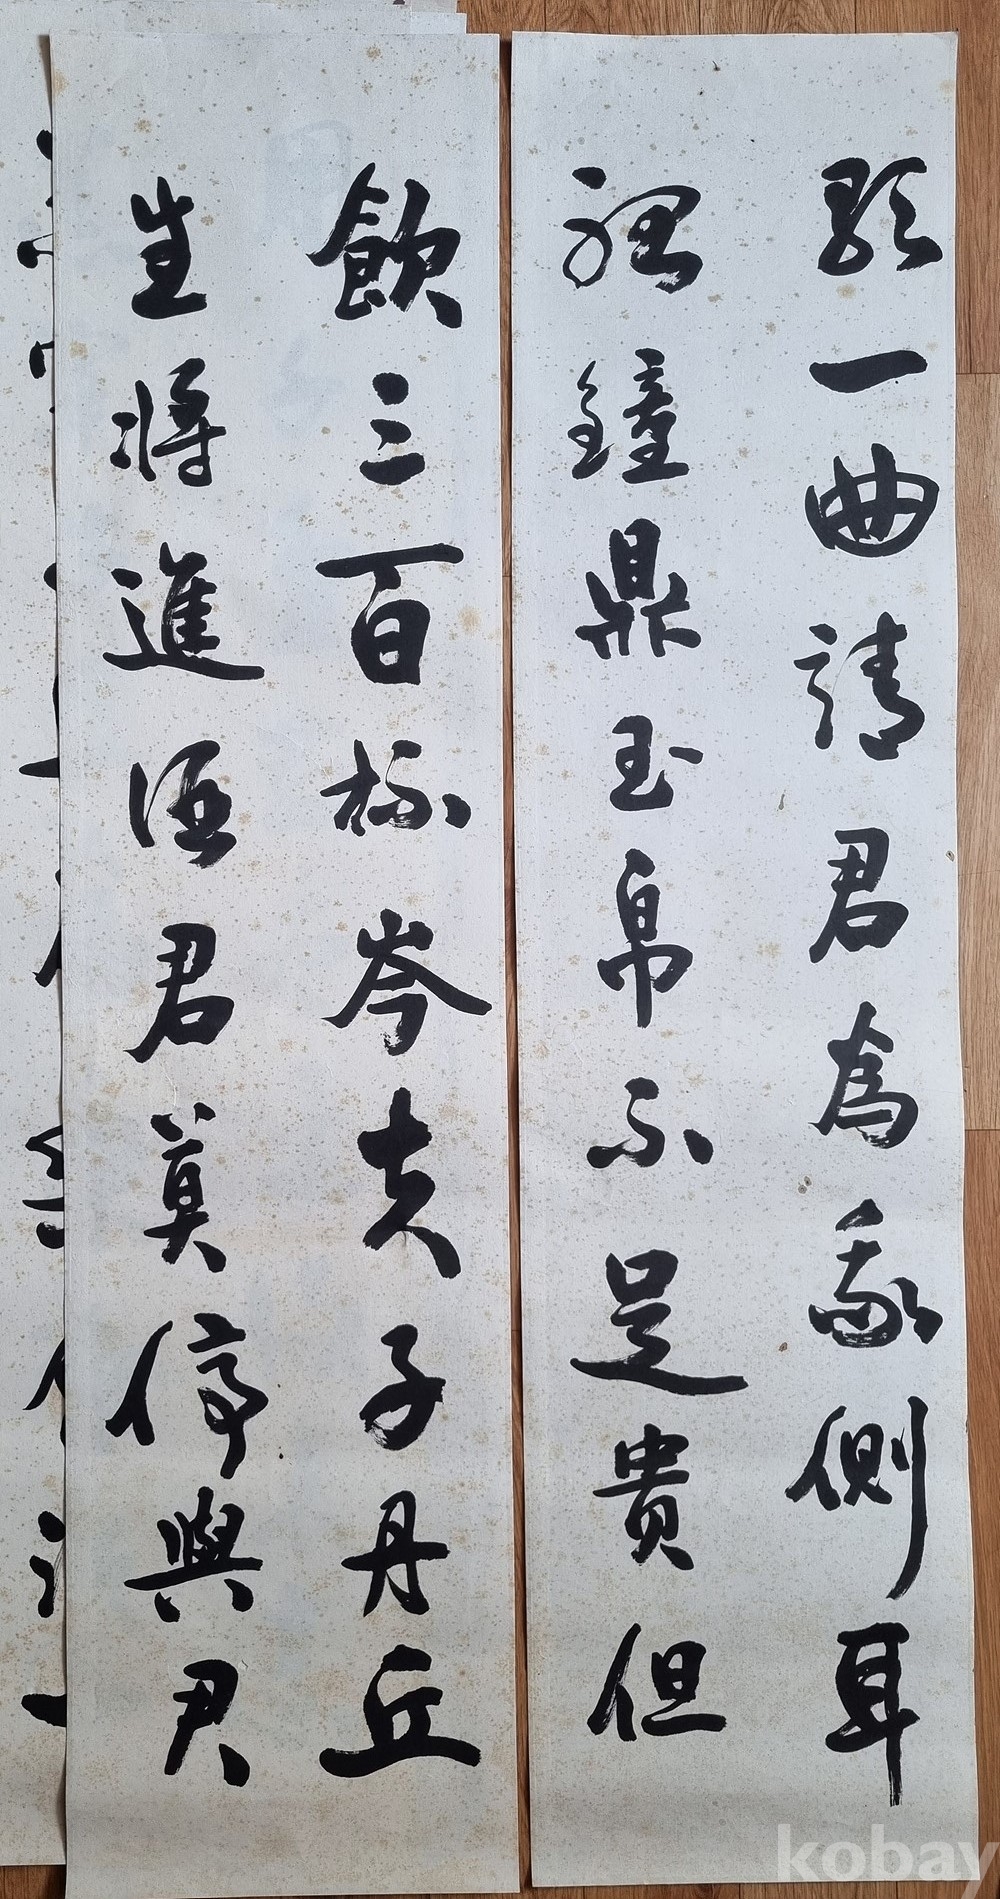 飲三百杯岑夫子丹丘
生將進酒君莫停與君
歌一曲請君為我側耳
聽鐘鼎玉帛不足貴但
kobay